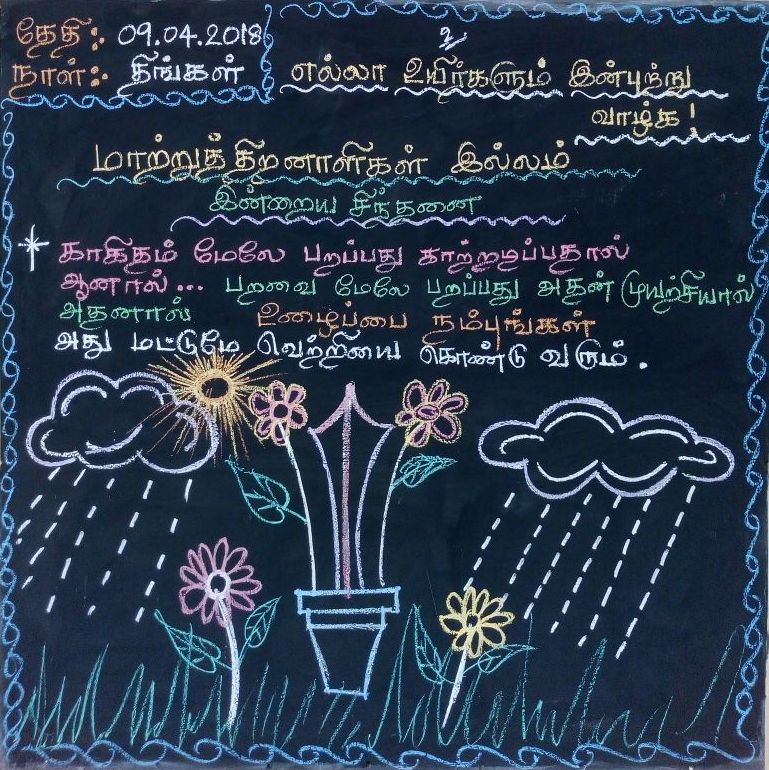 தேதி: 09.04.2018
நாள்: திங்கள்
உ
எல்லா உயிர்களும் இன்புற்று
வாழ்க!
மாற்றுத்திறனாளிகள் இல்லம்
இன்றைய சிந்தனை
காகிதம் மேலே பறப்பது காற்றடிப்பதால்
ஆனால்... பறவை மேலே பறப்பது அதன் முயற்சியால்
அதனால் உழைப்பை நம்புங்கள்
அது மட்டுமே வெற்றியை கொண்டு வரும்.